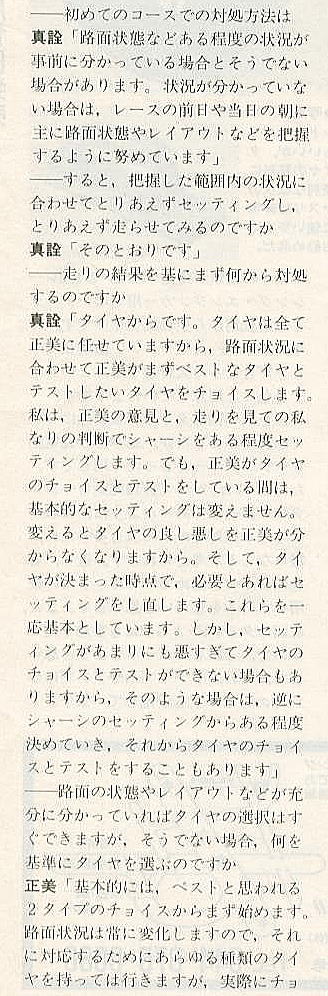 ――初めてのコースでの対処方法は
真詮「路面状態などある程度の状況が
事前に分かっている場合とそうでない
場合があります。状況が分かっていな
い場合は，レースの前日や当日の朝に
主に路面状態やレイアウトなどを把握
するように努めています」
――すると，把握した範囲内の状況に
合わせてとりあえずセッティングし，
とりあえず走らせてみるのですか
真詮「そのとおりです」
――走りの結果を基にまず何から対処
するのですか
真詮「タイヤからです。タイヤは全て
正美に任せていますから，路面状況に
合わせて正美がまずベストなタイヤと
テストしたいタイヤをチョイスします。
私は，正美の意見と，走りを見ての私
なりの判断でシャーシをある程度セッ
ティングします。でも，正美がタイヤ
のチョイスとテストをしている間は，
基本的なセッティングは変えません。
変えるとタイヤの良し悪しを正美が分
からなくなりますから。そして，タイ
ヤが決まった時点で，必要とあればセ
ッティングをし直します。これらを一
応基本としています。しかし，セッテ
ィングがあまりにも悪すぎてタイヤの
チョイスとテストができない場合もあ
りますから，そのような場合は，逆に
シャーシのセッティングからある程度
決めていき，それからタイヤのチョイ
スとテストをすることもあります」
――路面の状態やレイアウトなどが充
分に分かっていればタイヤの選択はす
ぐできますが，そうでない場合，何を
基準にタイヤを選ぶのですか
正美「基本的には，ベストと思われる
2タイプのチョイスからまず始めます。
路面状況は常に変化しますので，それ
に対応するためにあらゆる種類のタイ
ヤを持っては行きますが，実際にチョ